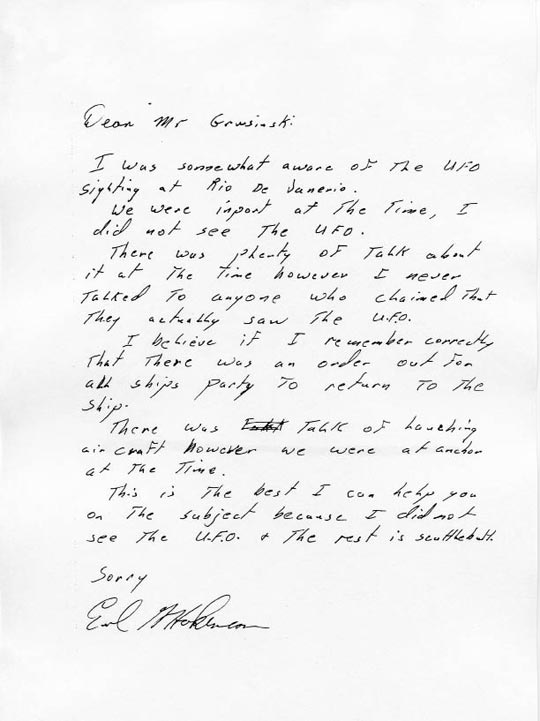 Dear Mr Grusinski
I was somewhat aware of the UFO
sighting at Rio De Janerio.
We were inport at the time, I
did not see the UFO.
There was plenty of talk about
it at the time however I never
talked to anyone who claimed that
they actually saw the U.F.O.
I believe if I remember correctly
that there was an order out for
all ships party to return to the
ship.
There was talk of lauching
air craft However we were at anchor
at the time.
This is the best I can help you
on the subject because I did not
see the U.F.O. & the rest is scuttlebutt.
Sorry
Earl